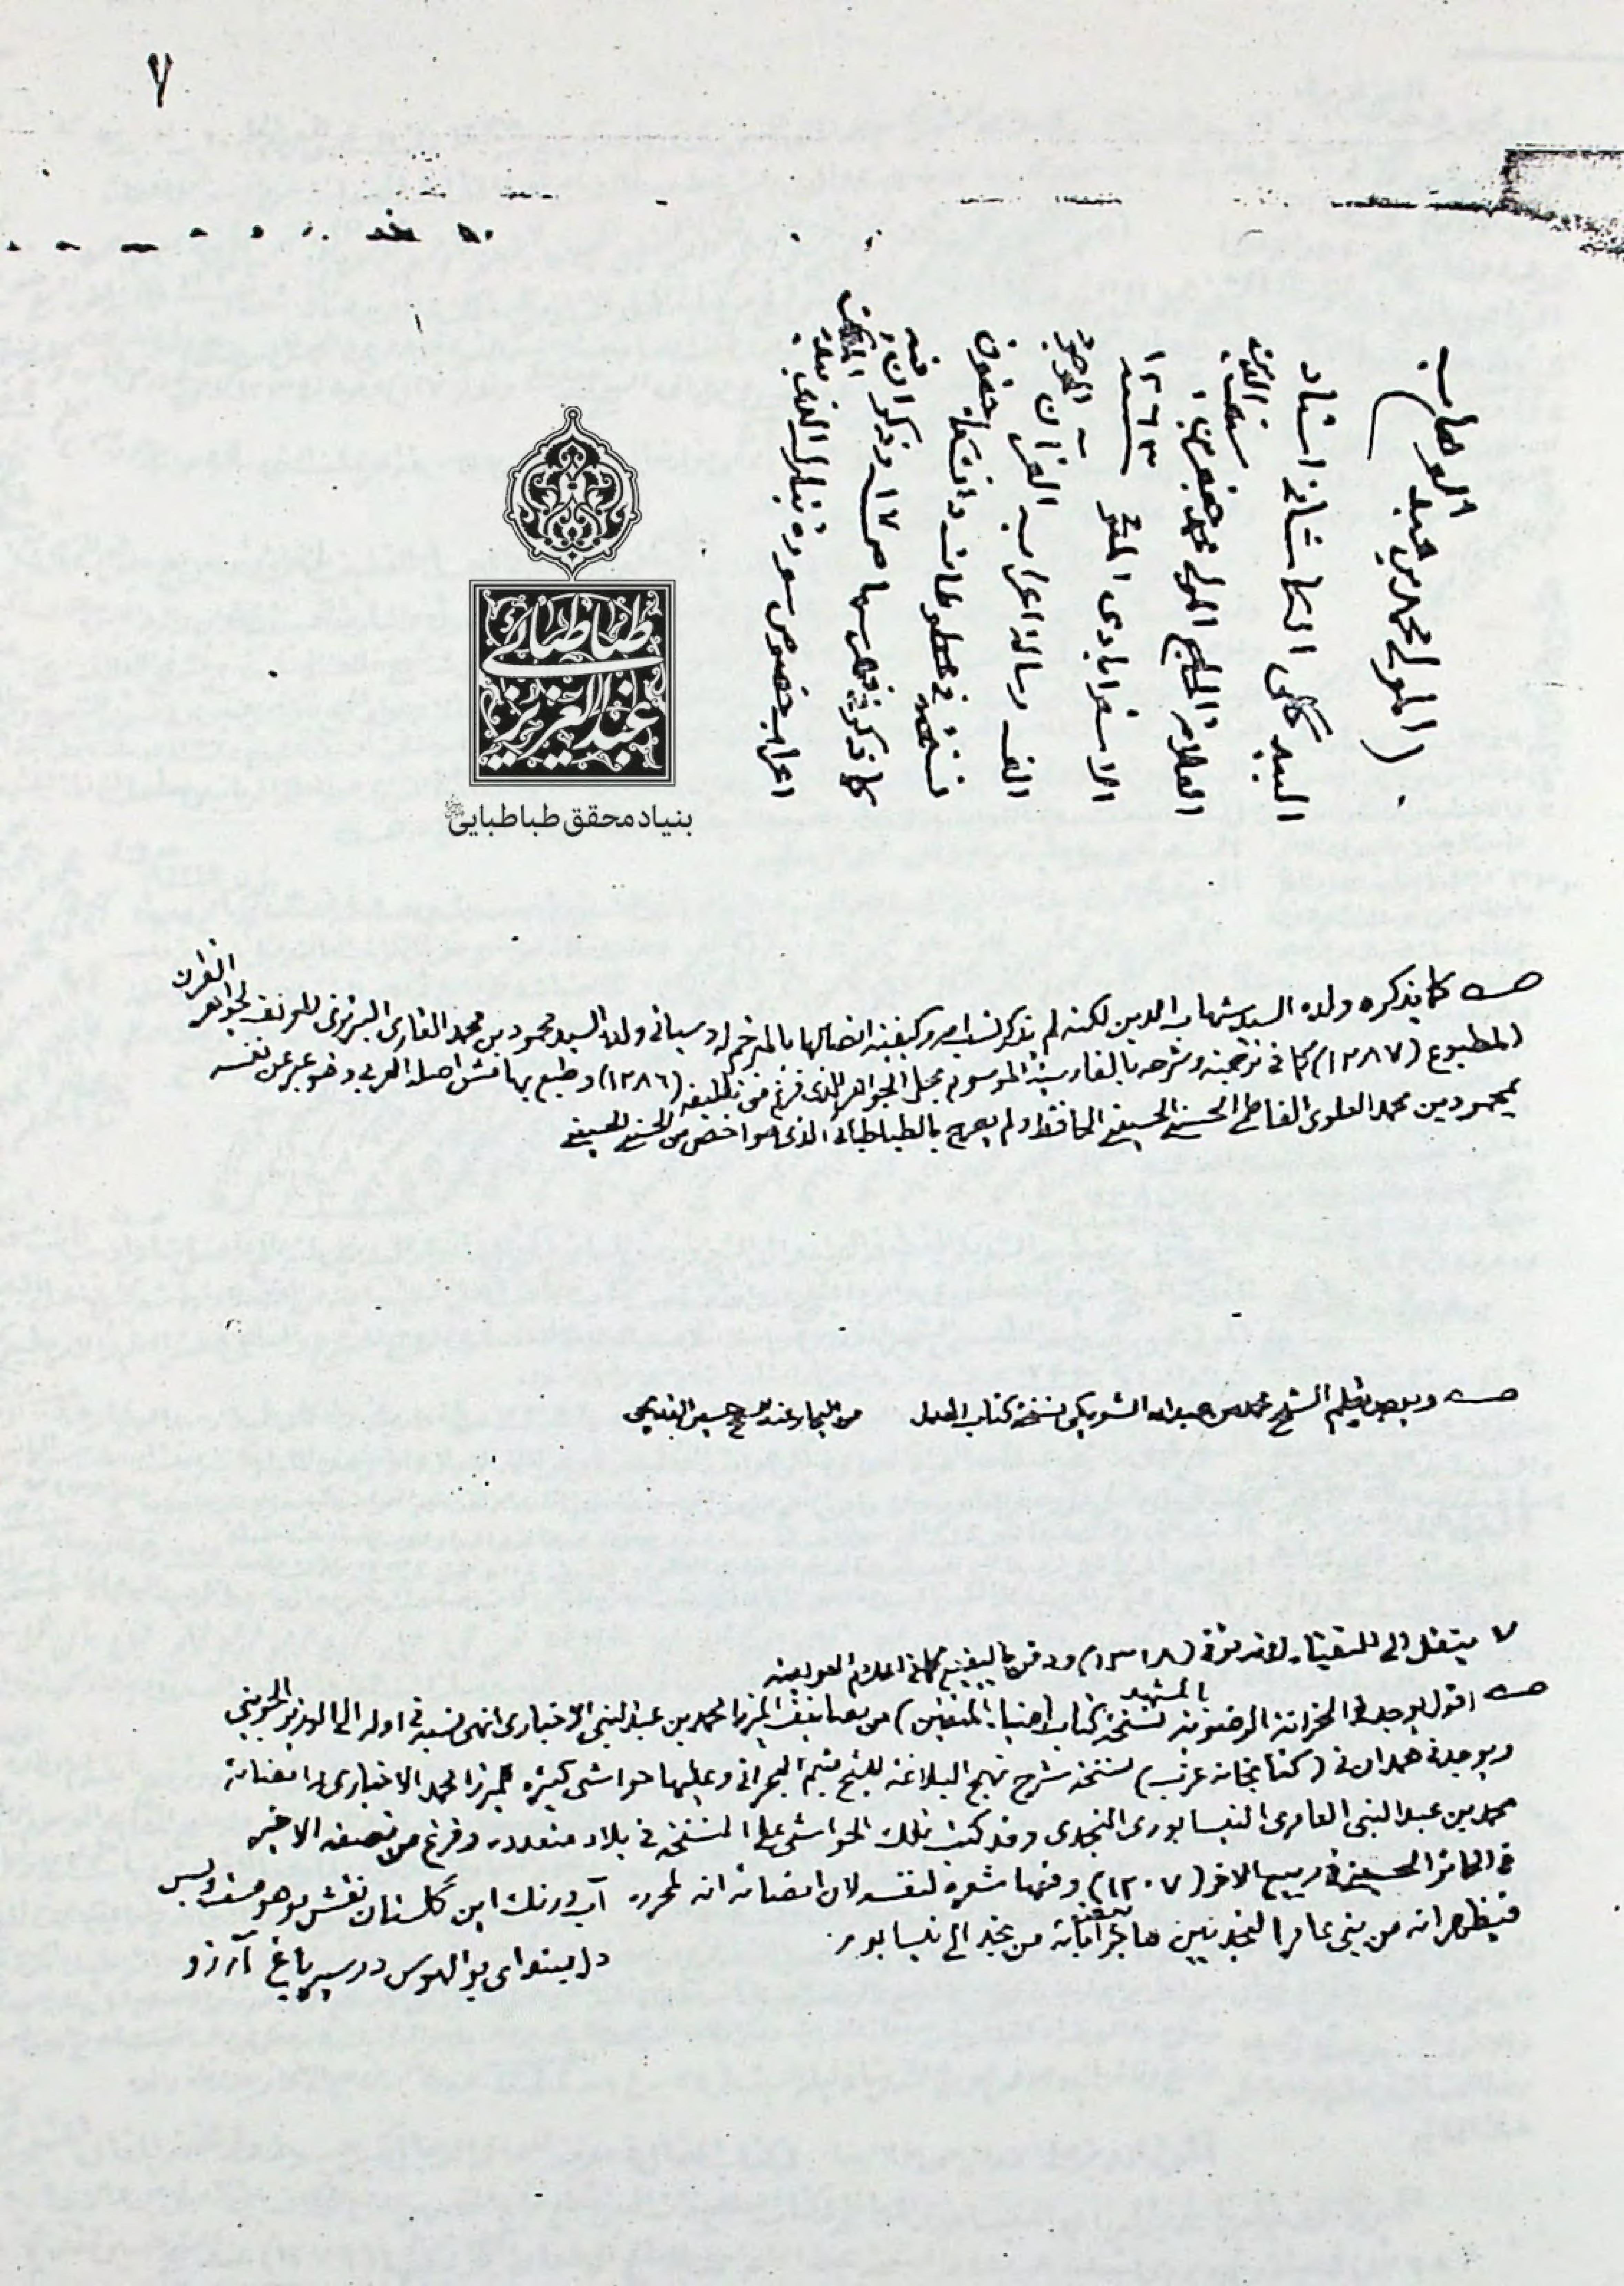 ٧
(المولى محمد بن عبد الوهاب)
البيدگلي الكاشاني استاد
العلامة الحاج المولى محمد جعفر بن سيف الدين
الاسترابادي المتوفى ١٢٦٣
الف رسالة اعراب القرآن الموجود
نسخته في مخطوطات
كما ذكر في فهرسها ص ١٧ وذكر ان فيه
اعراب خصوص سورة تبارك الذي بيده الملك
طباطبائى
عبدالعزيز
بنیاد محقق طباطبایی
كما يذكره ولده السيد شهاب الدين لكنه لم يذكر نسب امه وكيفية اتصالها بالمترجم له وسيأتي ولده السيد محمود بن محمد القاري التبريزي المؤلف لجواهر القرآن
المطبوع (١٢٨٧) كما في ترجمته وشرحه بالفارسية الموسوم بمجلى الجواهر الذي فرغ من تأليفه (١٢٨٦) وطبع بهامش اصله العربي وهو عبر عن نفسه
بمحمود بن محمد العلوي الفاطمي الحسني الحسيني الحافظ ولم يصرح بالطباطبائي الذي هو اخص من الحسني الحسيني
ويوجد بقلم الشيخ محمد بن عبد الله الشويكي نسخة كتاب العدل من البحار عند الشيخ حسين القديحي
٧ ينتقل الى النقباء لانه توفي (١٣١٨) ودفن بالبقيع
اقول يوجد في الخزانة الرضوية بالمشهد نسخة كتاب (ضياء المتقين) من تصانيف الميرزا محمد بن عبد النبي الاخباري انهى نسبه في اوله الى الوزير الجويني
ويوجد في همدان في (كتابخانه غرب) نسخة شرح نهج البلاغة للشيخ ميثم البحراني وعليها حواشي كثيرة للميرزا محمد الاخباري بامضائه
محمد بن عبد النبي العامري النيسابوري النجدي وقد كتب تلك الحواشي على النسخة في بلاد متعددة وفرغ من نصفه الاخير
في الحائر الحسيني في ربيع الآخر (١٢٠٧) وفيها شعره لنفسه لان امضائه انه لمحرره
آب ورنگ اين گلستان نقش موهومست وبس
فيظهر انه من بني عامر النجديين هاجر بعض آبائه من نجد الى نيسابور.
دل مبند اى بو الهوس در سير باغ آرزو